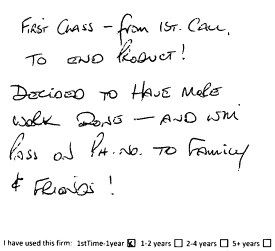 First Class - from 1st. Call,
To end Product!
Decided to have more
work done - and will
Pass on Ph. No. to Family
& Friends!
I have used this firm: 1stTime-1year ☒ 1-2 years ☐ 2-4 years ☐ 5+ years ☐